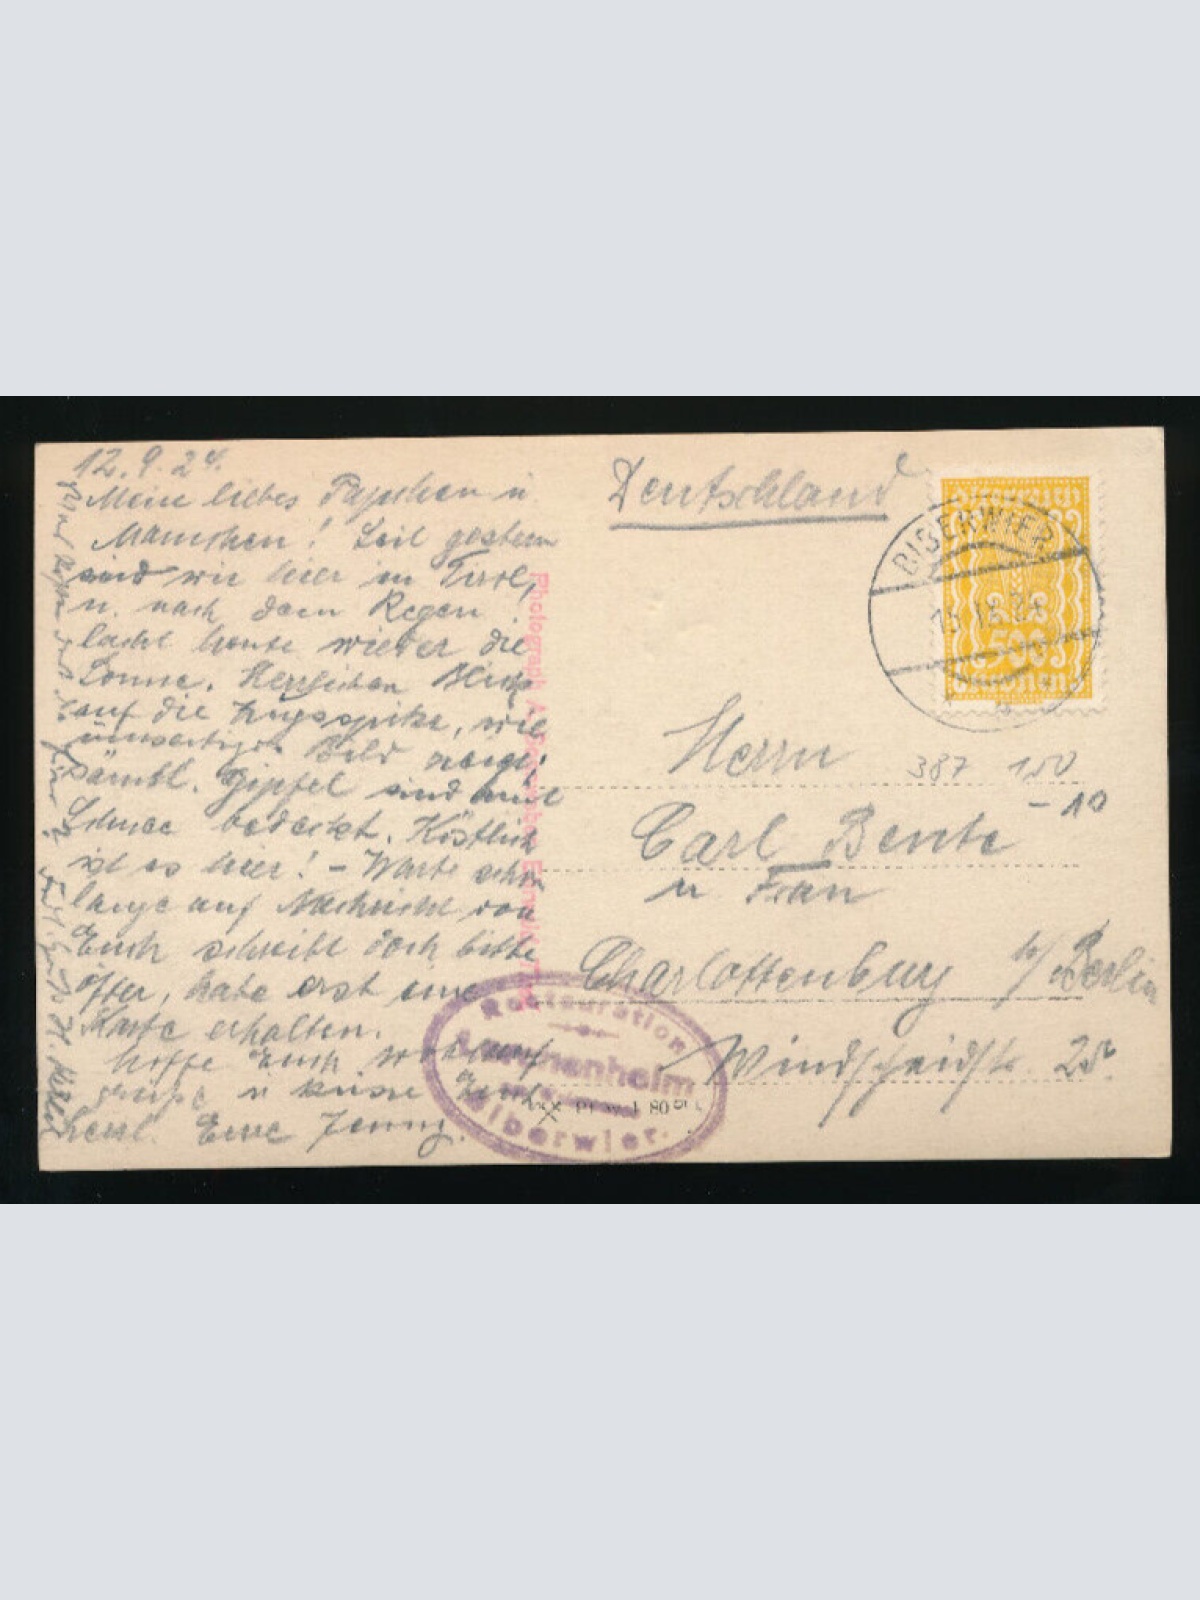 12.9.24.
Meine liebes Papchen u.
Mamchen! Seit gestern
sind wir hier in Tirol,
u. nach dem Regen
lacht heute wieder die
Sonne. Herrlichen Blick
auf die Zugspitze, wie
umseitiges Bild zeigt,
sämtl. Gipfel sind mit
Schnee bedeckt. Köstlich
ist es hier! – Warte schon
lange auf Nachricht von
Euch schreibt doch bitte
öfter, habe erst eine
Karte erhalten.
Hoffe Euch wohlauf
grüße u küsse Euch
herzl. Eure Jenny.
Deutschland
BIBERWIER
24
500
Kronen
Herrn
387 150
- 10
Carl Bente
u Frau
Charlottenburg b/ Berlin
Windscheidstr. 25
Photograph A.
Restauration
Biberwier.